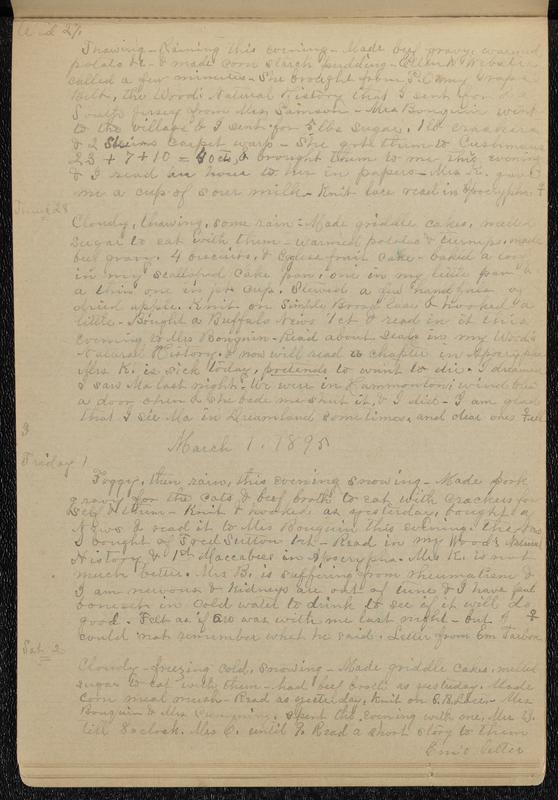 Wed 27.
Thawing - Raining this evening - Made beef gravy, warmed
potato &c - & made corn starch pudding - Ellen A Webster
called a few minutes - She brought from P.O. my Grape
Belt, the Wood's Natural History that I sent for
South Jersey from Mrs. Samson - Mrs Bonguin went
to the village & I sent for 5 lbs sugar, 1 lb crackers
& 2 Skeins carpet warp - She got them to Cushmans
23 + 7 + 10 = 40 cts, & brought them to me this evening
& I read an hour to her in papers - Mrs K. gave
me a cup of sour milk - Knit lace read in Apocrypha
Thurs 28
Cloudy, thawing, some rain - Made griddle cakes, melted
sugar to eat with them - warmed potato & turnips, made
beef gravy. 4 biscuits, & fruit cake - baked a loaf
in my scalloped cake pan, one in my little pan &
a thin one in jet cup. Stewed a few handfuls of
dried apple. Knit on Smilie Brook lace & hooked a
little - Bought a Buffalo News 1ct & read in it this
evening to Mrs Bonguin - Read about Seals in my Wood's
Natural History. I now will read a chapter in Apocrypha
Mrs K. is sick today, pretends to want to die. I dreamed
I saw Ma last night, we were in Hammonton, wind blew
a door open & she bade me shut it, & I did - I am glad
that I see Ma in Dreamland sometimes, and dear ones
March 1. 1895
Friday 1
Foggy, then rain, this evening snowing - Made pork
gravy for the cats & beef broth to eat with crackers for
self - Knit & hooked as yesterday, bought a
News & read it to Mrs Bonguin this evening. The
I bought of Fred Sutton 1ct - Read in my Wood's Natural
History & 1st Maccabees in Apocrypha. Mrs K. is not
much better. Mrs B. is suffering from rheumatism &
I am nervous & kidneys are out of tune & I have put
boneset in cold water to drink to see if it will do
good. Felt as if was with me last night - but I
could not remember what he said. Letter from Em Tarbox
Sat. 2
Cloudy - freezing cold, snowing - Made griddle cakes, melted
sugar to eat with them - had beef broth as yesterday. Made
corn meal mush - Read as yesterday, knit on S.B. Lace - Mrs
Bonguin & Mrs spent the evening with me, Mrs B.
till 8 oclock. Mrs C. until 9. Read a short story to them